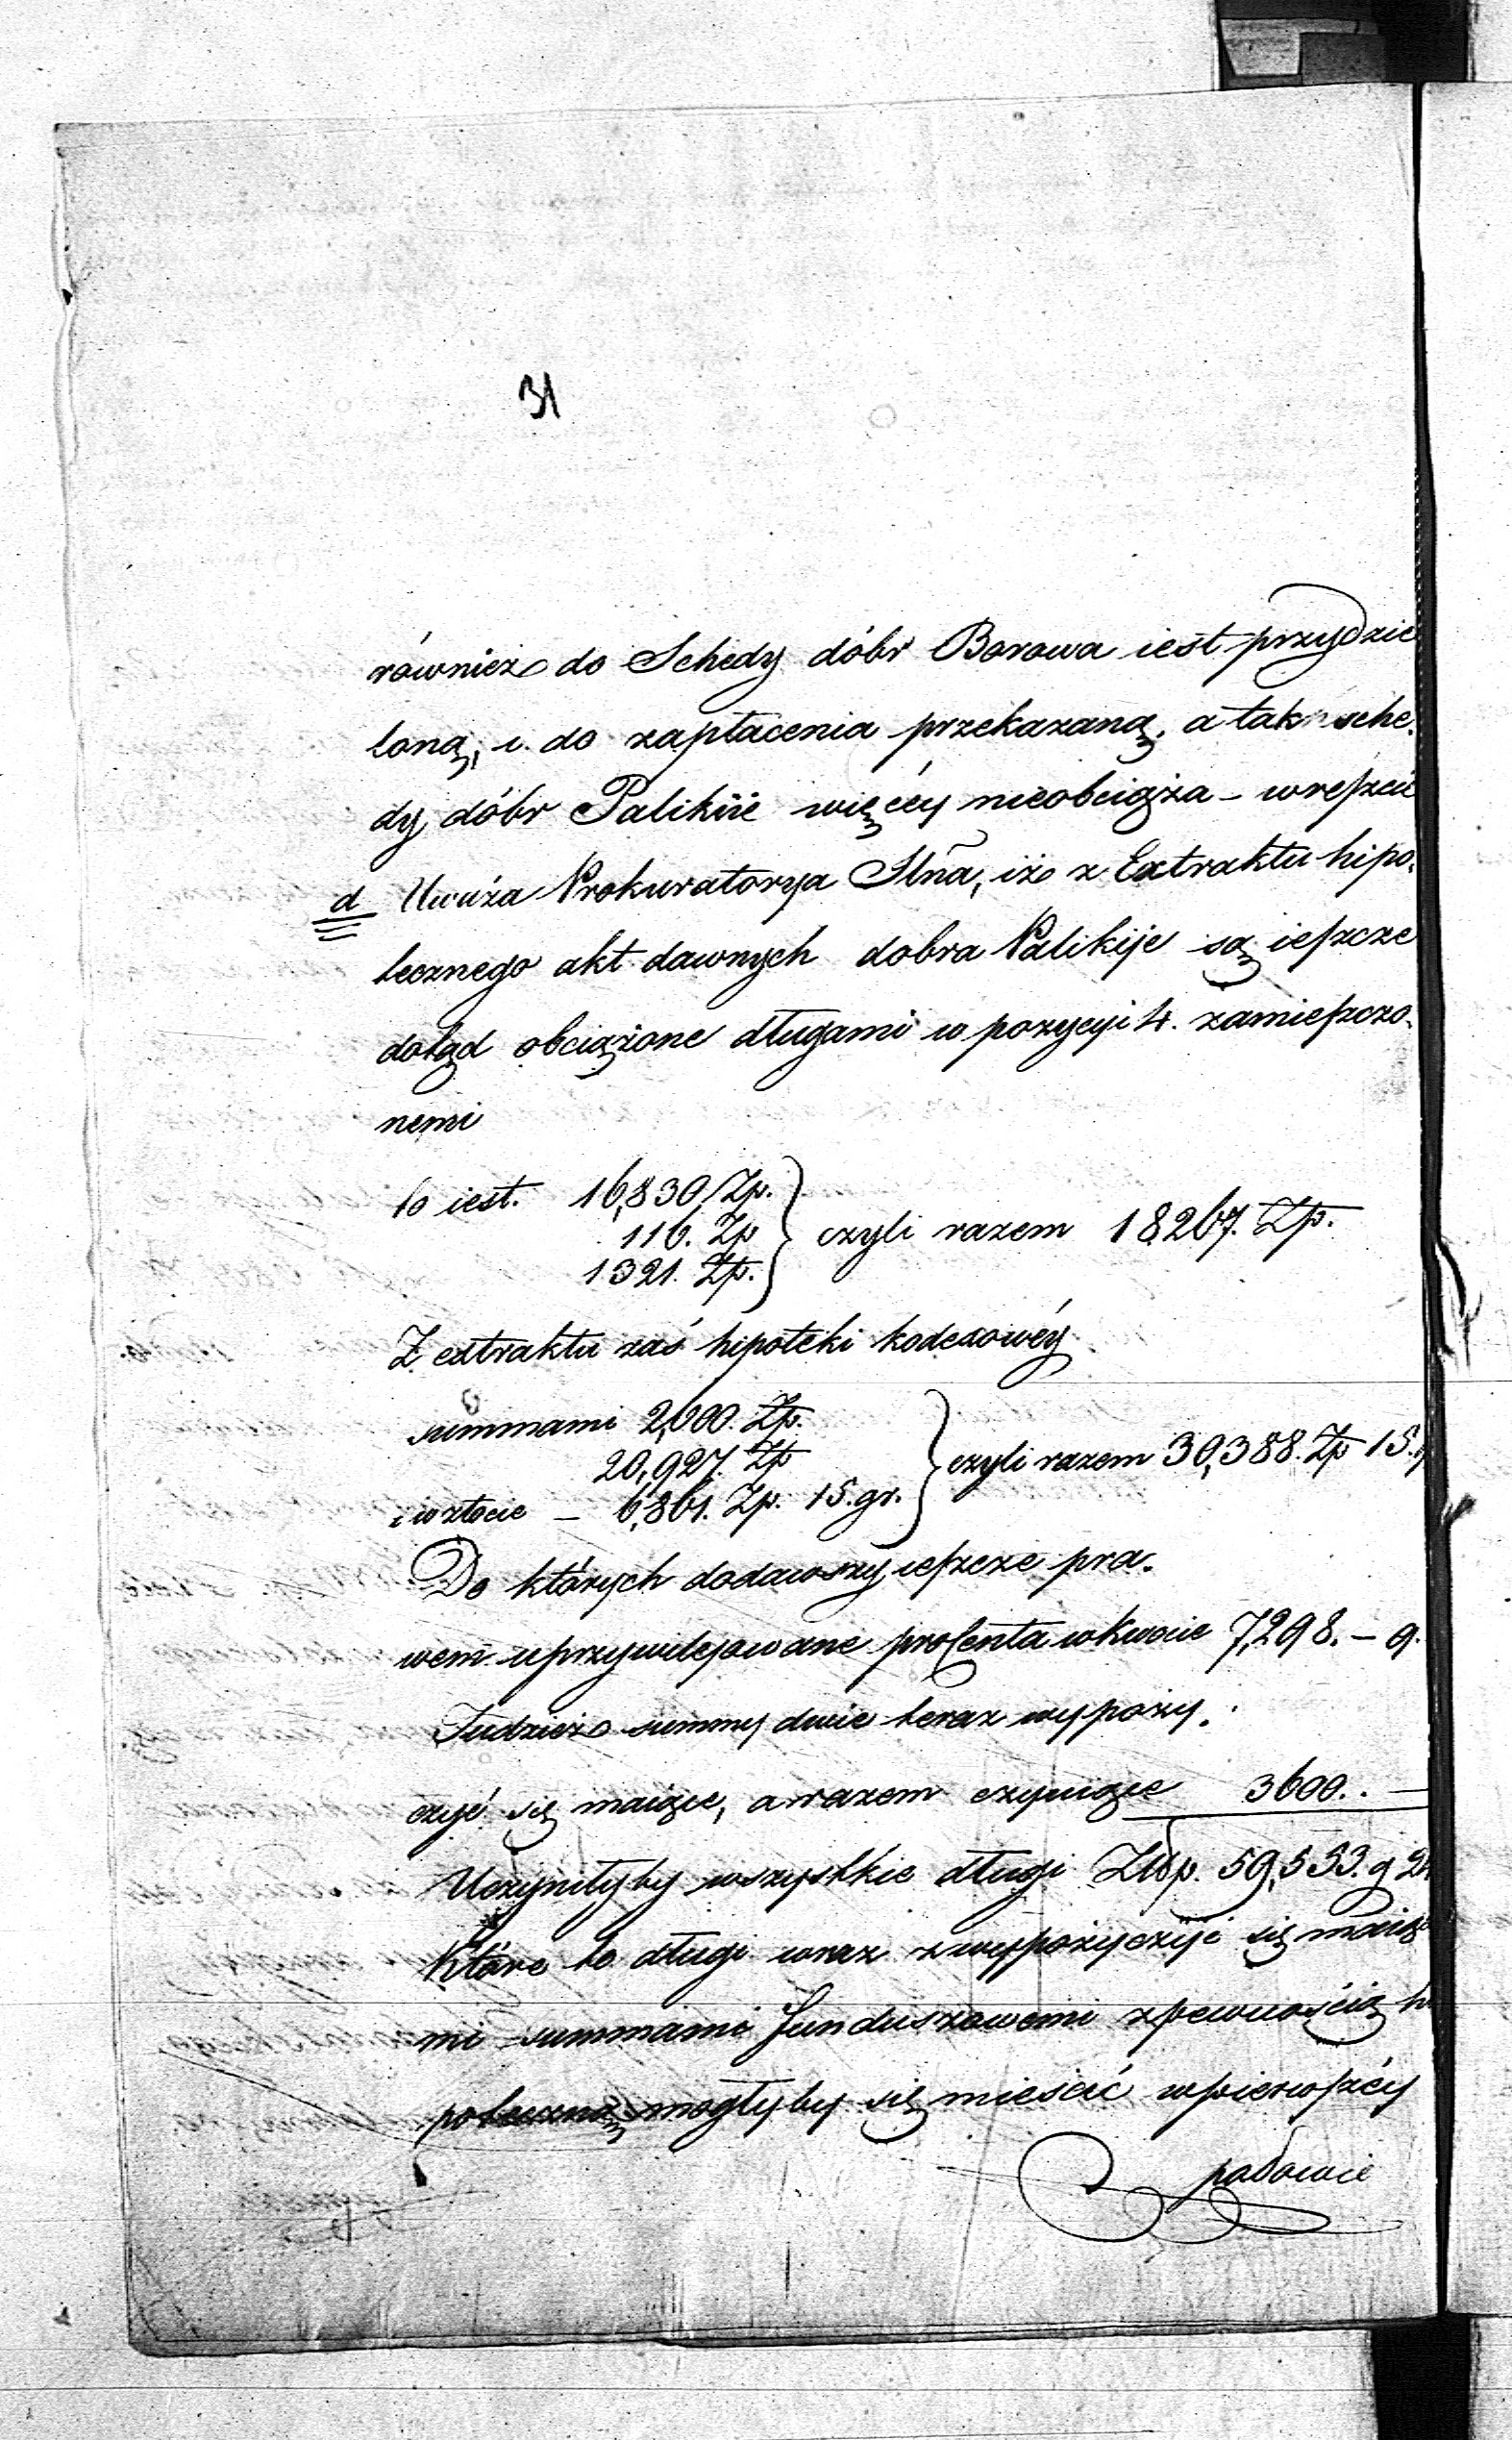 31
również do Schedy dóbr Borowa iest przydzie
loną, i do zapłacenia przekazaną, a tak sche.
dy dóbr Palikiie więcéy nieobciąża - wreszcie
d Uważa Prokuratorya Stña, iż z Extraktu hipo.
tecznego akt dawnych dobra Palikije są ieszcze
dotąd obciążone długami w pozycyi 4. zamieszczo.
nemi
to iest. 16,830 Zp.
116. Zp
1321. Zp. } czyli razem 18,267. Zp.
Z extraktu zaś hipoteki kodexowéy
summami 2,600. Zp.
20,927. Zp
i w złocie - 6,861. Zp. 15. gr. } czyli razem 30,388. Zp 15.
Do których dodawszy ieszcze pra.
wem uprzywilejowane procenta w kwocie 7,298. - 9.
Tudzież summy dwie teraz wypoży.
czyć się maiące, a razem czyniące 3600. . —
Uczyniłyby wszystkie długi Złłp. 59,553. g 24
Które to długi wraz z wypożyczyć się maią
mi summami Funduszowemi z pewnością hi
poteczną mogłyby się mieścić w pierwszéy
połowie